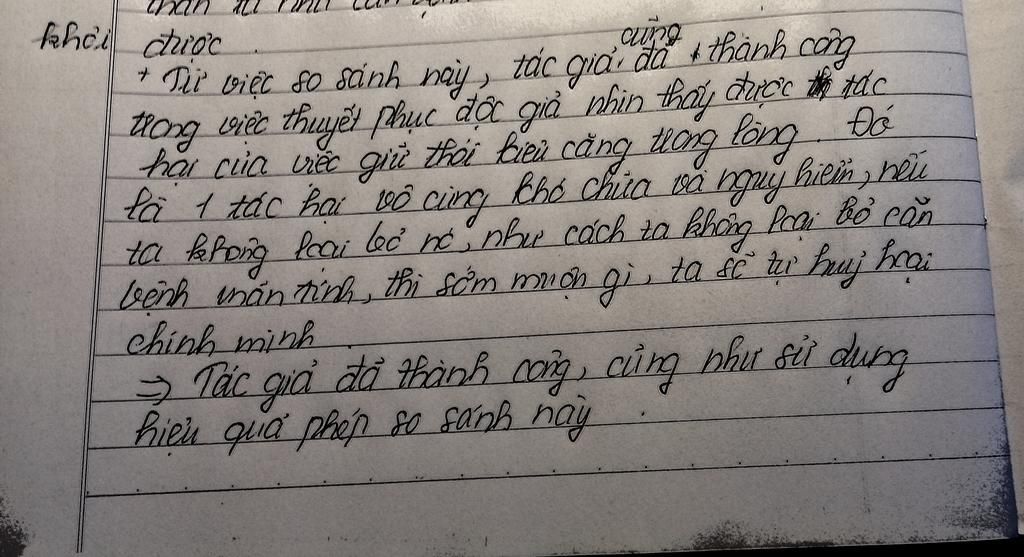 khỏi được.
+ Từ việc so sánh này, tác giả cũng đã thành công
trong việc thuyết phục độc giả nhìn thấy được tác
hại của việc giữ thói kiêu căng trong lòng. Đó
là 1 tác hại vô cùng khó chữa và nguy hiểm, nếu
ta không loại bỏ nó, như cách ta không loại bỏ căn
bệnh mãn tính, thì sớm muộn gì, ta sẽ tự huỷ hoại
chính mình.
=> Tác giả đã thành công, cũng như sử dụng
hiệu quả phép so sánh này.